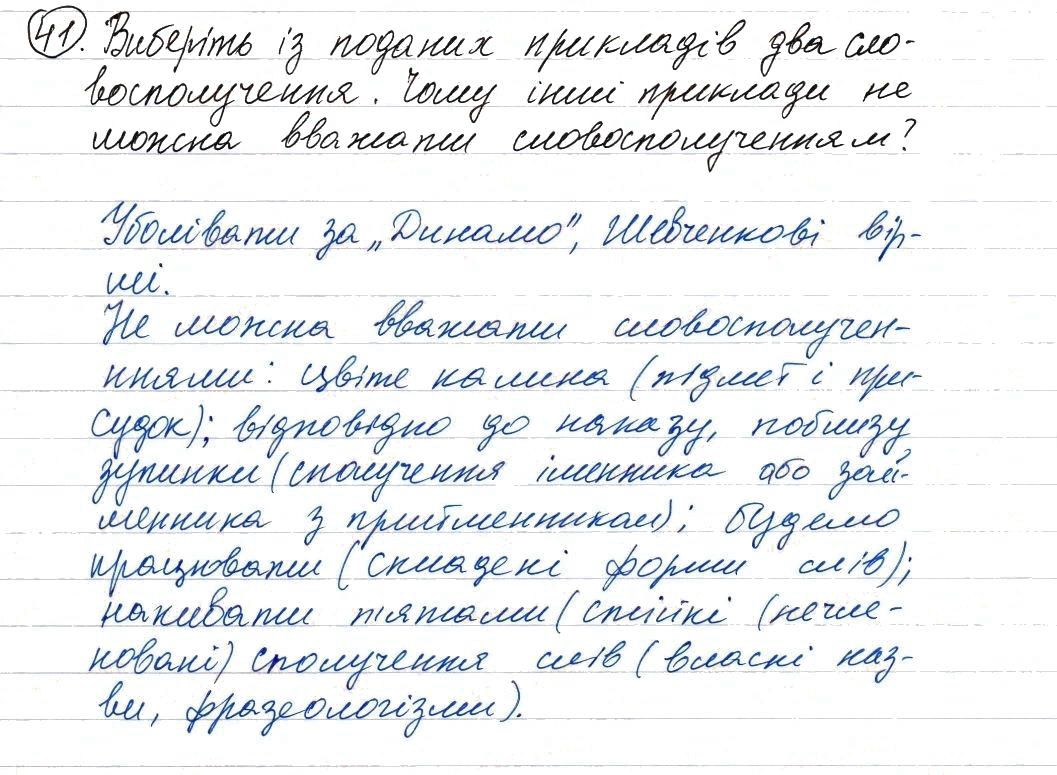 41. Виберіть із поданих прикладів два сло-
восполучення. Чому інші приклади не
можна вважати словосполученням?
Уболівати за „Динамо", Шевченкові вір-
ші.
Не можна вважати словосполучен-
нями: цвіте калина (підмет і при-
судок); відповідно до наказу, поблизу
зупинки (сполучення іменника або зай-
менника з прийменником); будемо
працювати (складені форми слів);
накивати п'ятами (стійкі (нечле-
новані) сполучення слів (власні наз-
ви, фразеологізми).